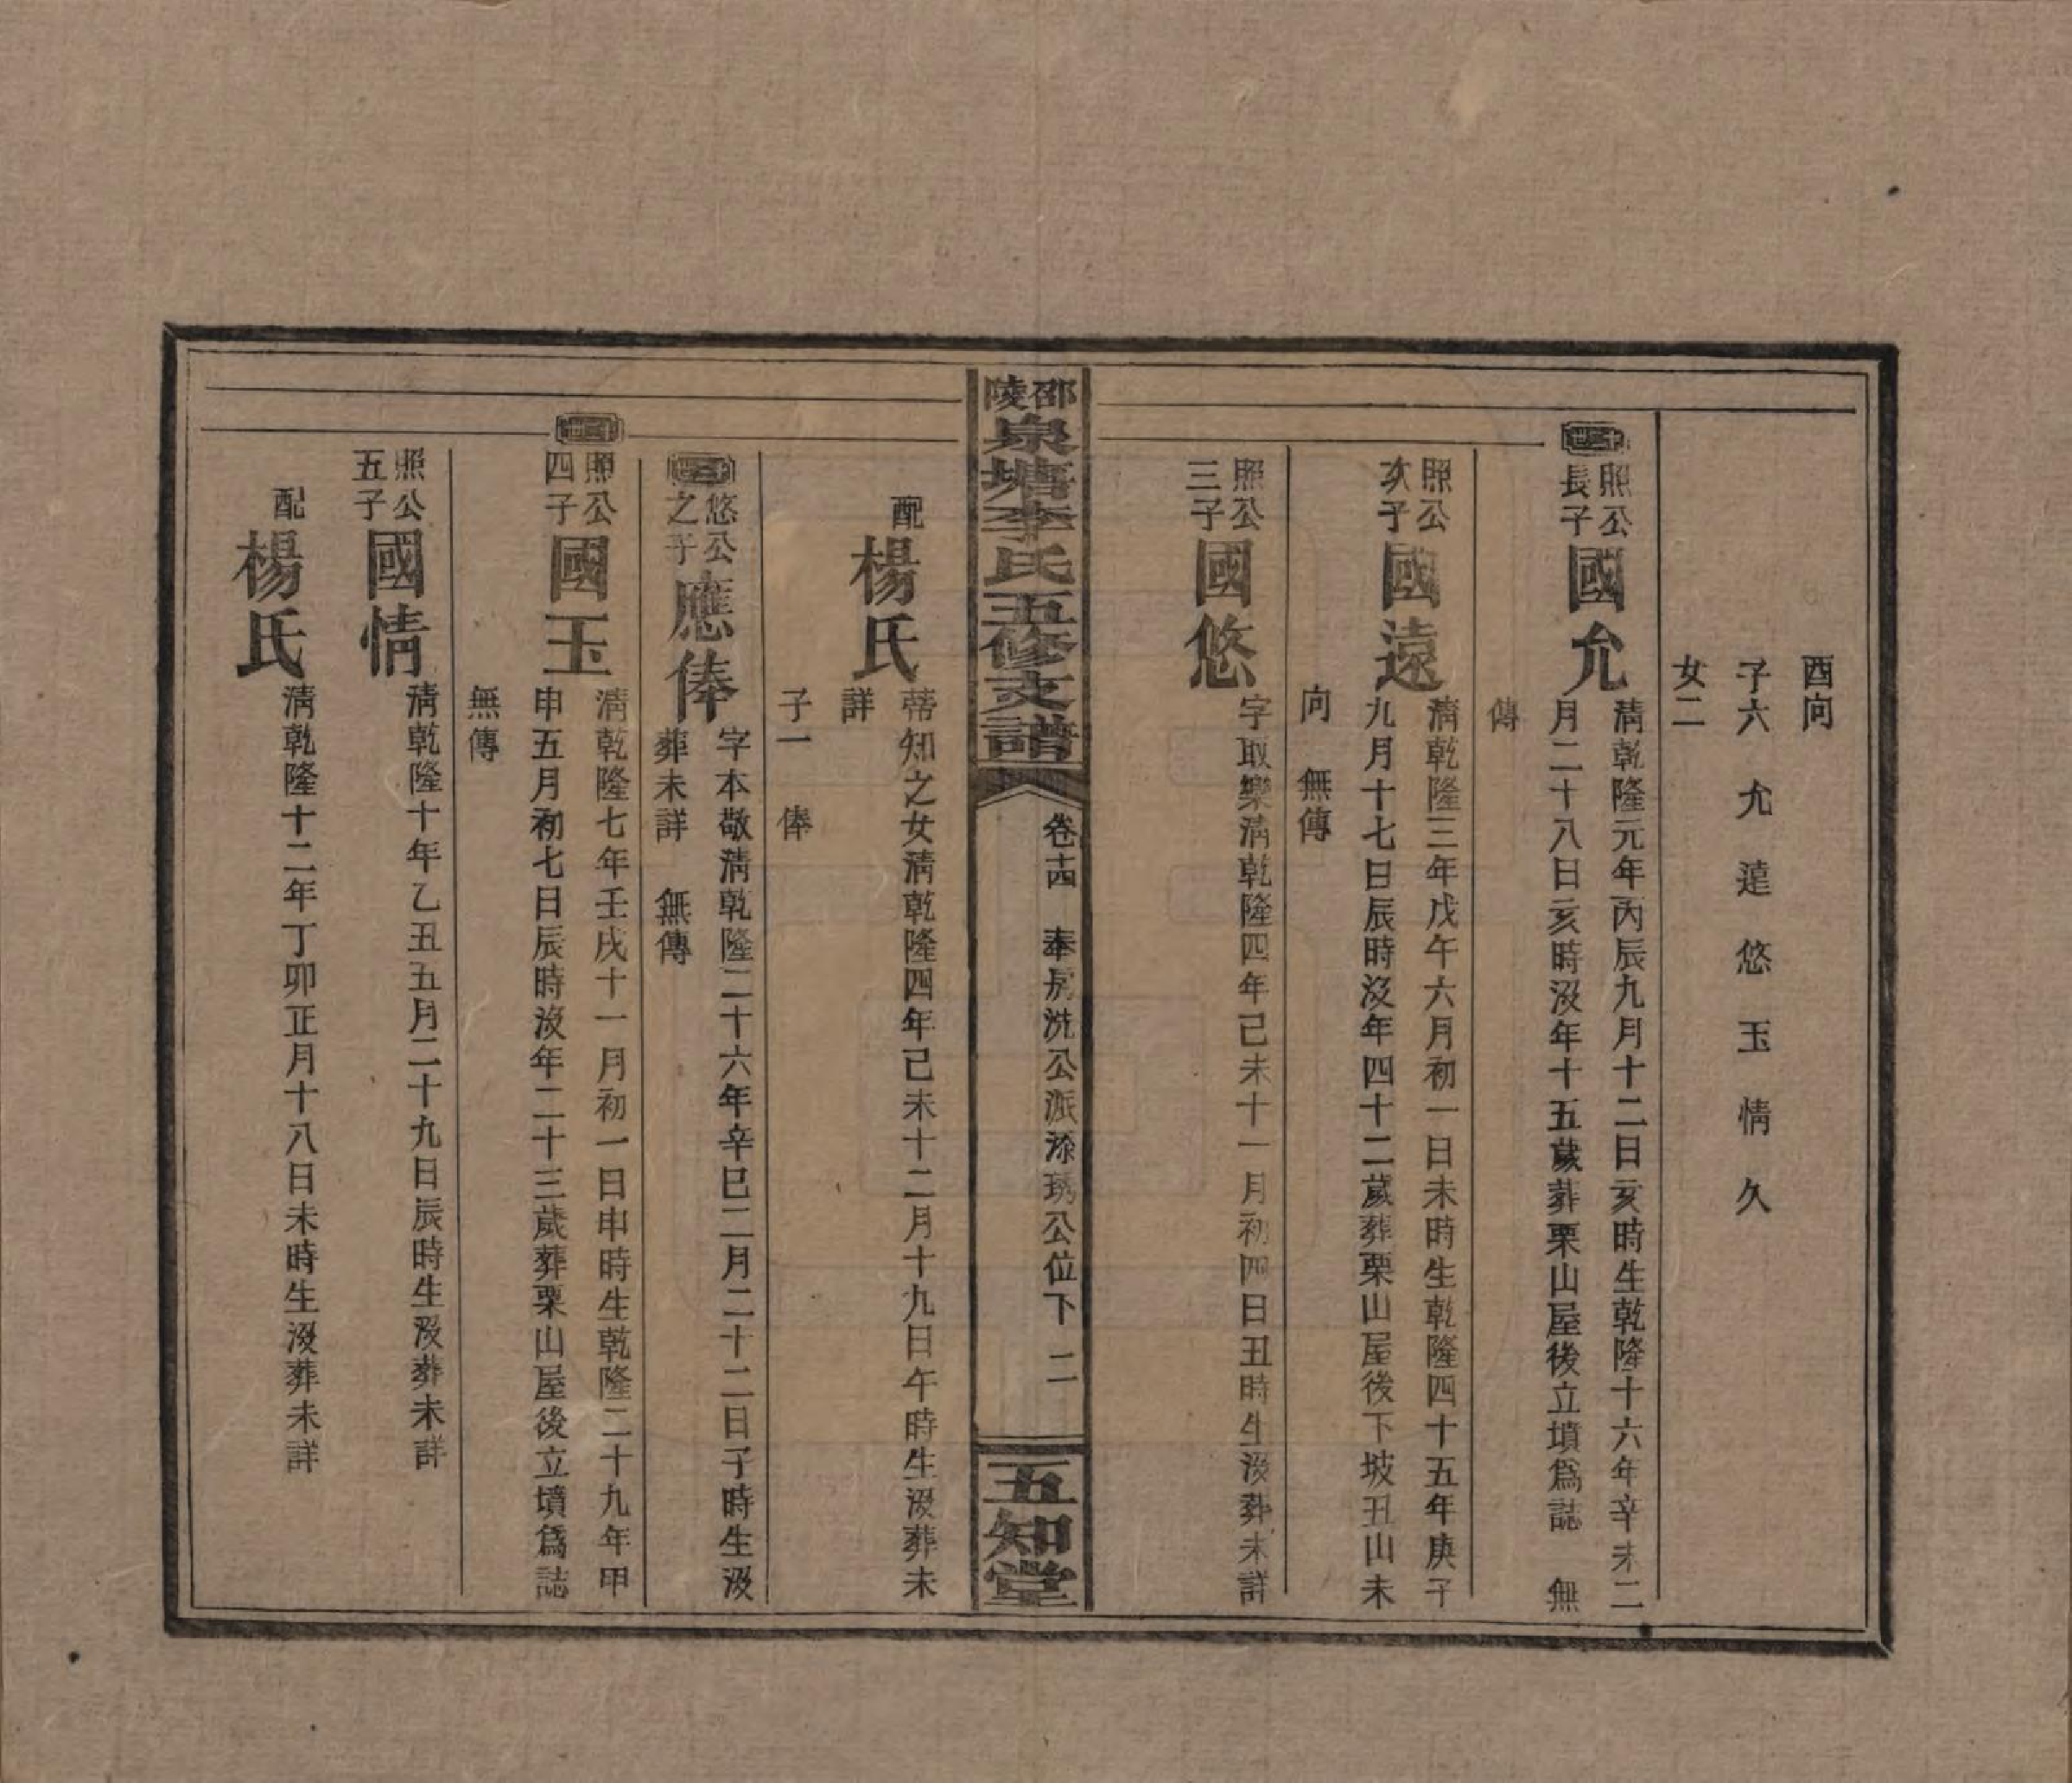 酉向
子六 允 遠 悠 玉 情 久
女二
照公長子
國允
清乾隆元年丙辰九月十二日亥時生乾隆十六年辛未二
月二十八日亥時没年十五歲葬栗山屋後立墳爲誌 無
傳
照公次子
國遠
清乾隆三年戊午六月初一日未時生乾隆四十五年庚子
九月十七日辰時没年四十二歲葬栗山屋後下坡丑山未
向 無傳
照公三子
國悠
字取樂清乾隆四年己未十一月初四日丑時生没葬未詳
邵陵泉塘李氏五修支譜
卷十四 奉房洗公派添琇公位下 二
五知堂
配
楊氏
蒂知之女清乾隆四年己未十二月十九日午時生没葬未
詳
子一 俸
悠公之子
應俸
字本敬清乾隆二十六年辛巳二月二十二日子時生没
葬未詳 無傳
照公四子
國玉
清乾隆七年壬戌十一月初一日申時生乾隆二十九年甲
申五月初七日辰時没年二十三歲葬栗山屋後立墳爲誌
無傳
照公五子
國情
清乾隆十年乙丑五月二十九日辰時生没葬未詳
配
楊氏
清乾隆十二年丁卯正月十八日未時生没葬未詳